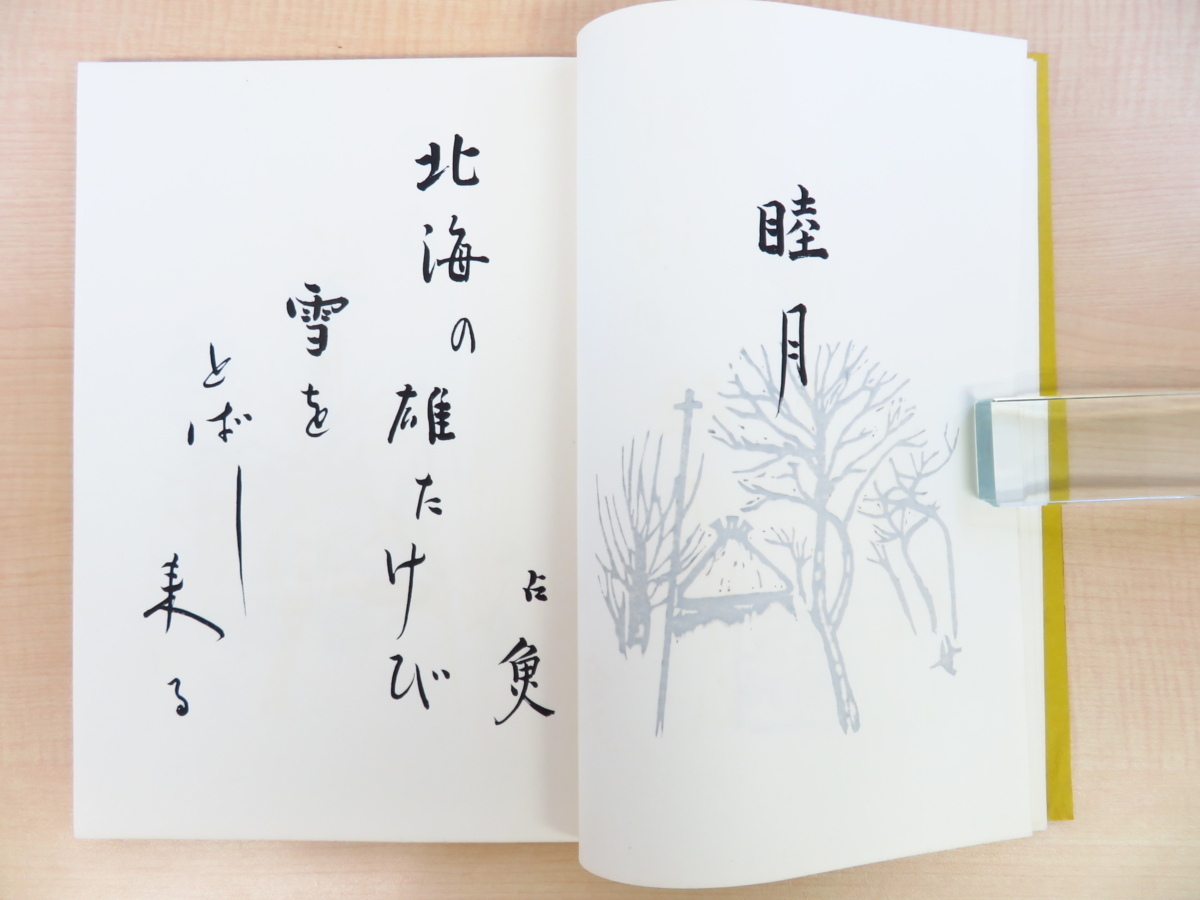 睦月
占魚
北海の雄たけび
雪を
とばし
来る